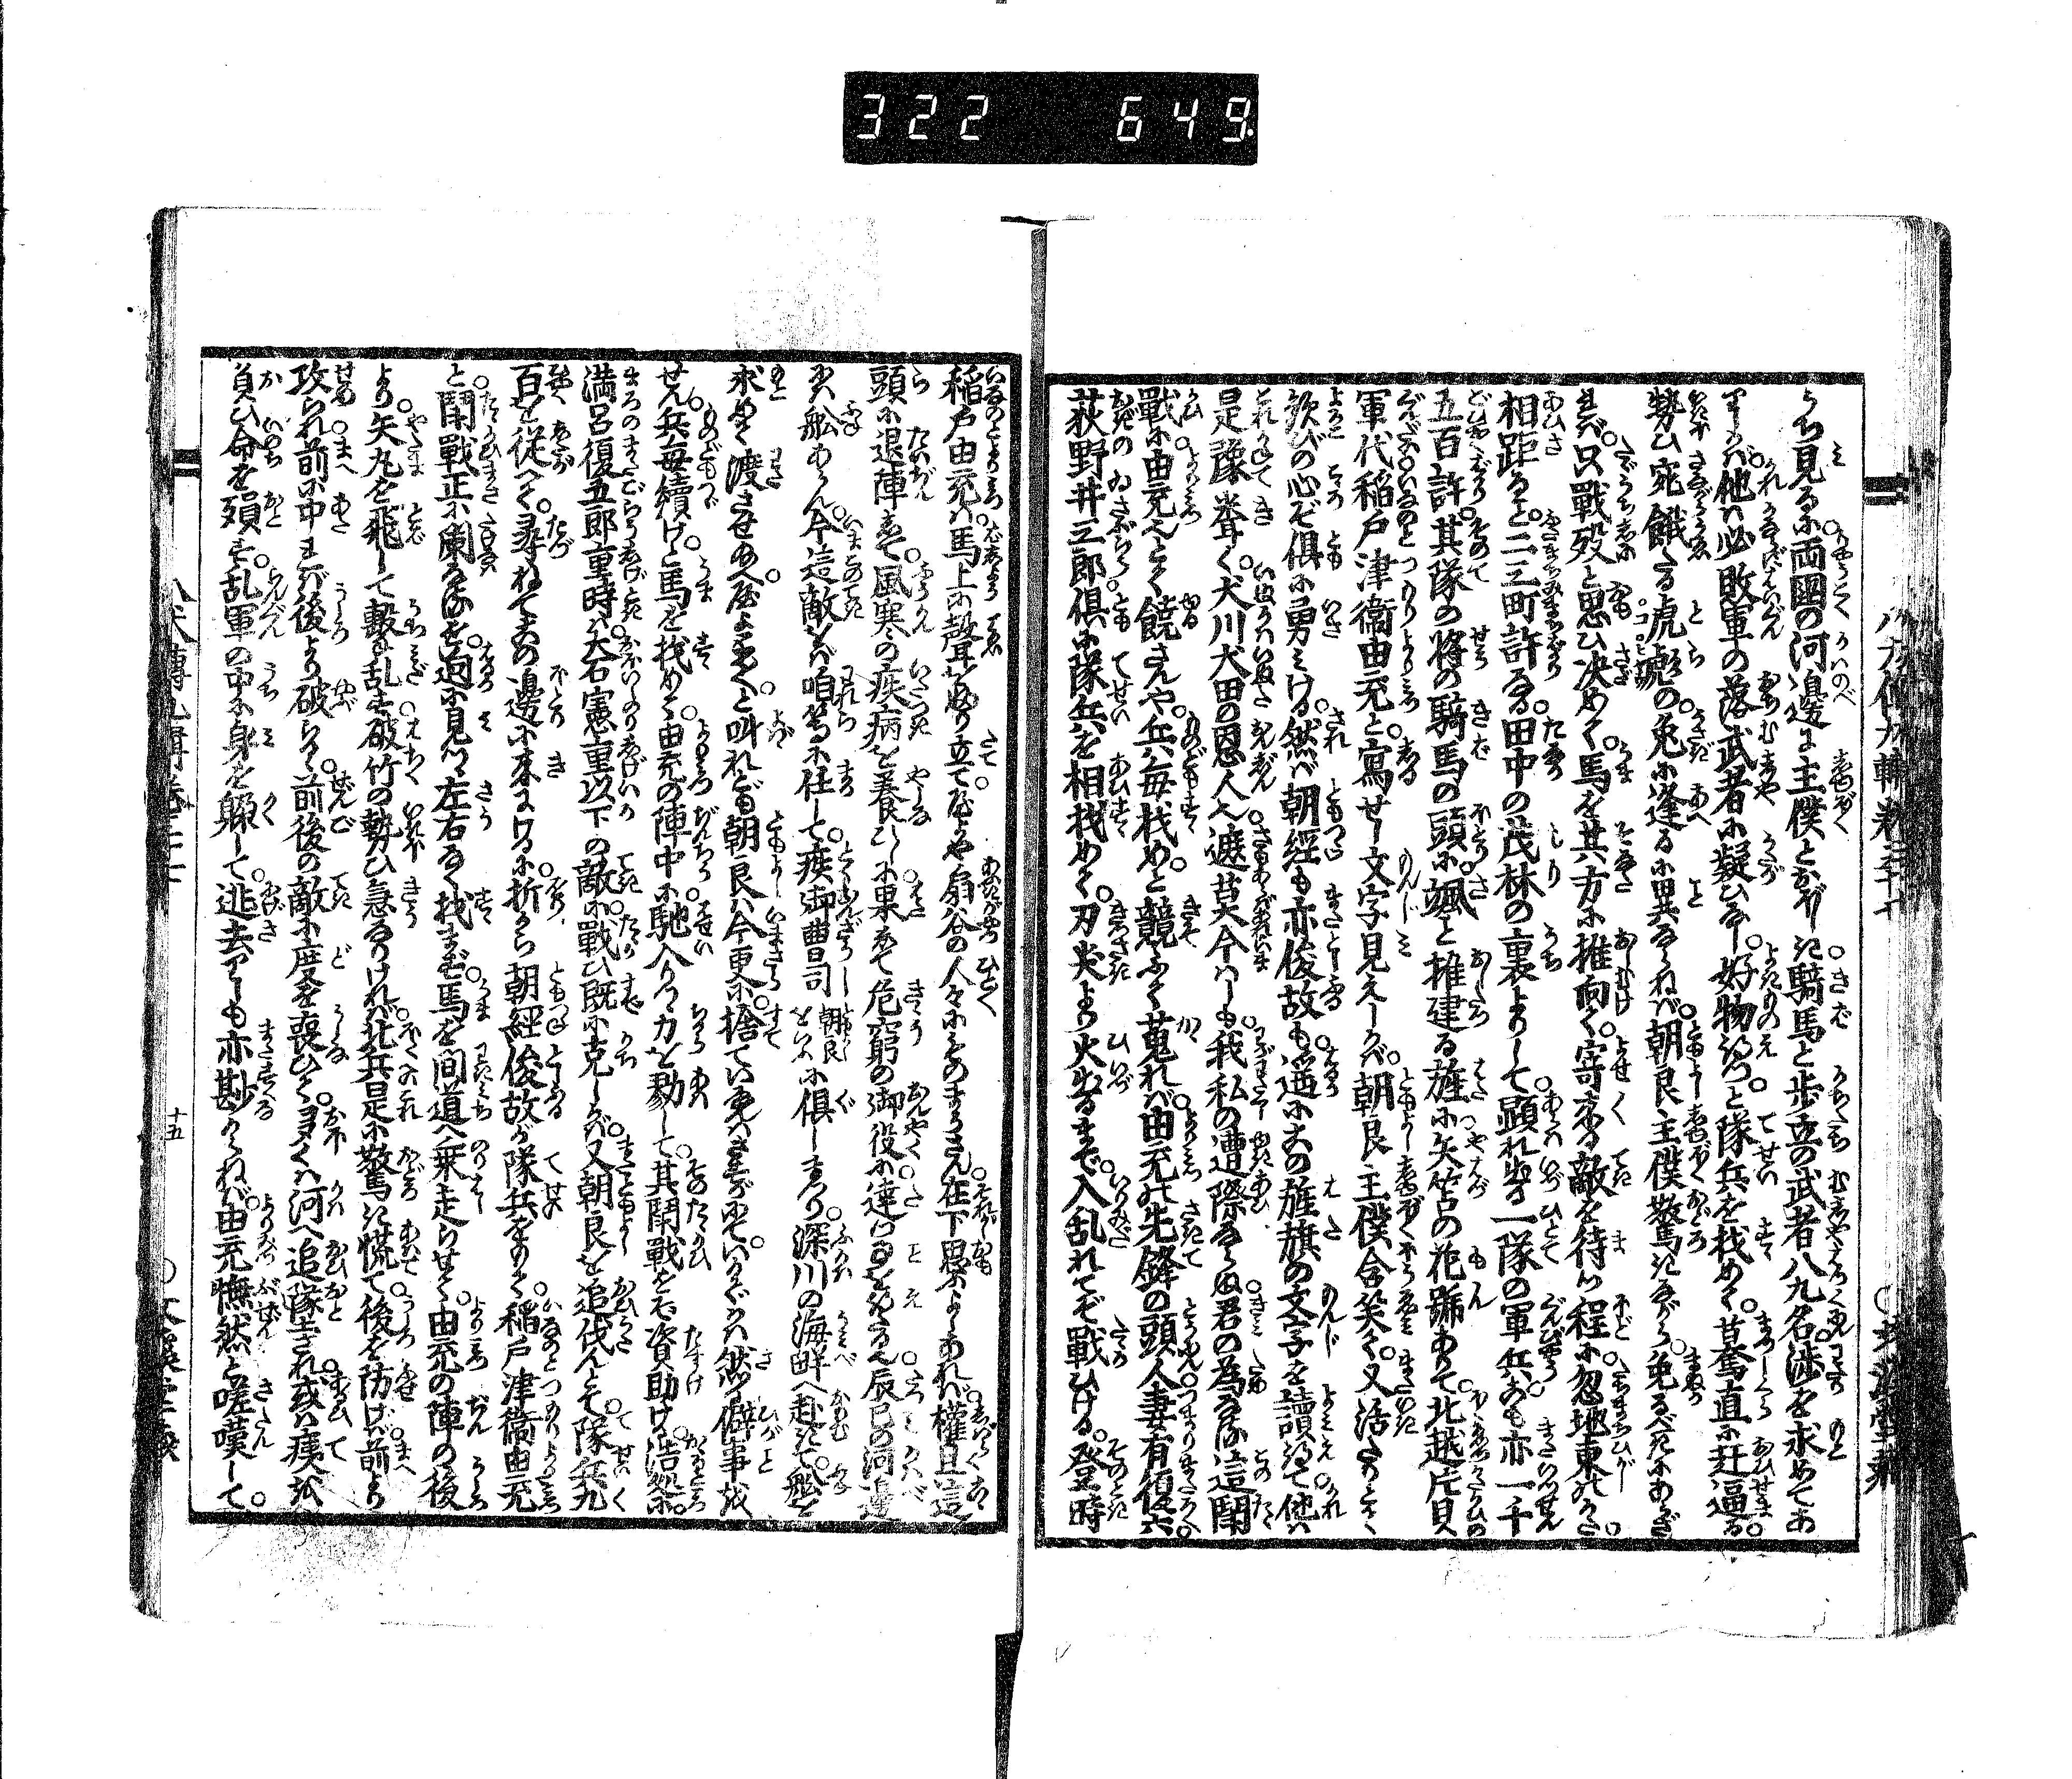 322 649
うち見るに両國の河邊に主僕とおぼしき騎馬と歩立の武者八九名渉を求めてあ
りしかバ他ハ必敗軍の落武者に疑ひなし好物ぞと隊兵を找めく驀直に赶逼る
勢ひ宛餓たる虎彪の兔に逢るに異ならねバ朝良主僕驚きながら免るべきにあらざ
れバ只戰歿と思ひ決めて馬を其方に推向て寄來る敵を待つ程に忽地東のかた
相距ること二三町許なる田中の茂林の裏よりして顕れ出る一隊の軍兵あり亦一千
五百許其隊の将の騎馬の頭に颯と推建る旌に矢筈の花號ありて北越片貝
軍代稲戸津衞由充と寫せし文字見えしかバ朝良主僕含笑て又活たるこゝ
欸びの心ぞ俱に勇みける然バ朝經も亦俊故も遥にその旌旗の文字を讀得て他ハ
是豫聳く犬川犬田の恩人也遮莫今ハしも我私の遭際ならぬ君の為なる這鬪
戰に由充也とて饒さんや兵毎找めと競ふて蒐れバ由充の先鋒の頭人妻有復六
荻野井三郎俱に隊兵を相找めて刃尖より火出るまで入乱れてぞ戰ひける登時
稲戸由充ハ馬上に聲ふり立て扇谷の人々にものまうさん在下思ふよしあれバ權且這
頭に退陣して風寒の疾病を養ひしに果して危窮の御役に達ける辰巳の河邊
ハ舩あらん今這敵をバ咱等に任して疾御曹司朝良をいふに俱しまつり深川の海畔へ赴きて舩を
求めて渡させ給へと叫れども朝良ハ今更に捨てハ免ハさすがにていかでかハ然る僻事を
せん兵毎續けと馬を找めて由充の陣中に馳入りつ力を勠して其鬪戰を資助け浩処に
満呂復五郎重時ハ大石憲重以下の敵に戰ひ既に克しかバ又朝良を追伐んとて隊兵九
百を従へて尋ねてこの邊に來にけるに折から朝經俊故が隊兵をもて稲戸津衞由充
と鬪戰正に闌なるを迥に見つ左右なく找まず馬を間道へ乗走らせて由充の陣の後
より矢丸を飛して轂乱す破竹の勢ひ急なりけれバ北兵是に驚き慌て後を防げバ前より
攻られ前に中れバ後より破られ前後の敵に度を喪ひて多くハ河へ追墜され或ハ痍を
負ひ命を殞す乱軍の中に身を躱して逃去りしも亦尠からねバ由充憮然と嗟嘆して
十五